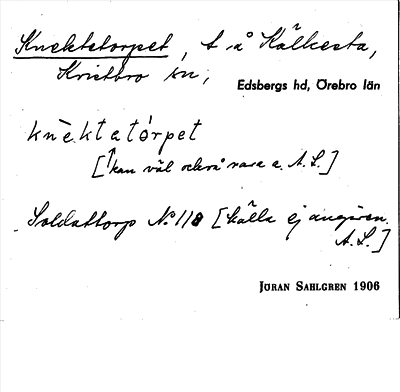 Knektatorpet, t. å Källesta,
Kristbro sn,
Edsbergs hd, Örebro län
knèktatórpet
[↑kan väl också vara a. A.S.]
Soldattorp No 118 [källa ej angiven.
A.S.]
JÖRAN SAHLGREN 1906